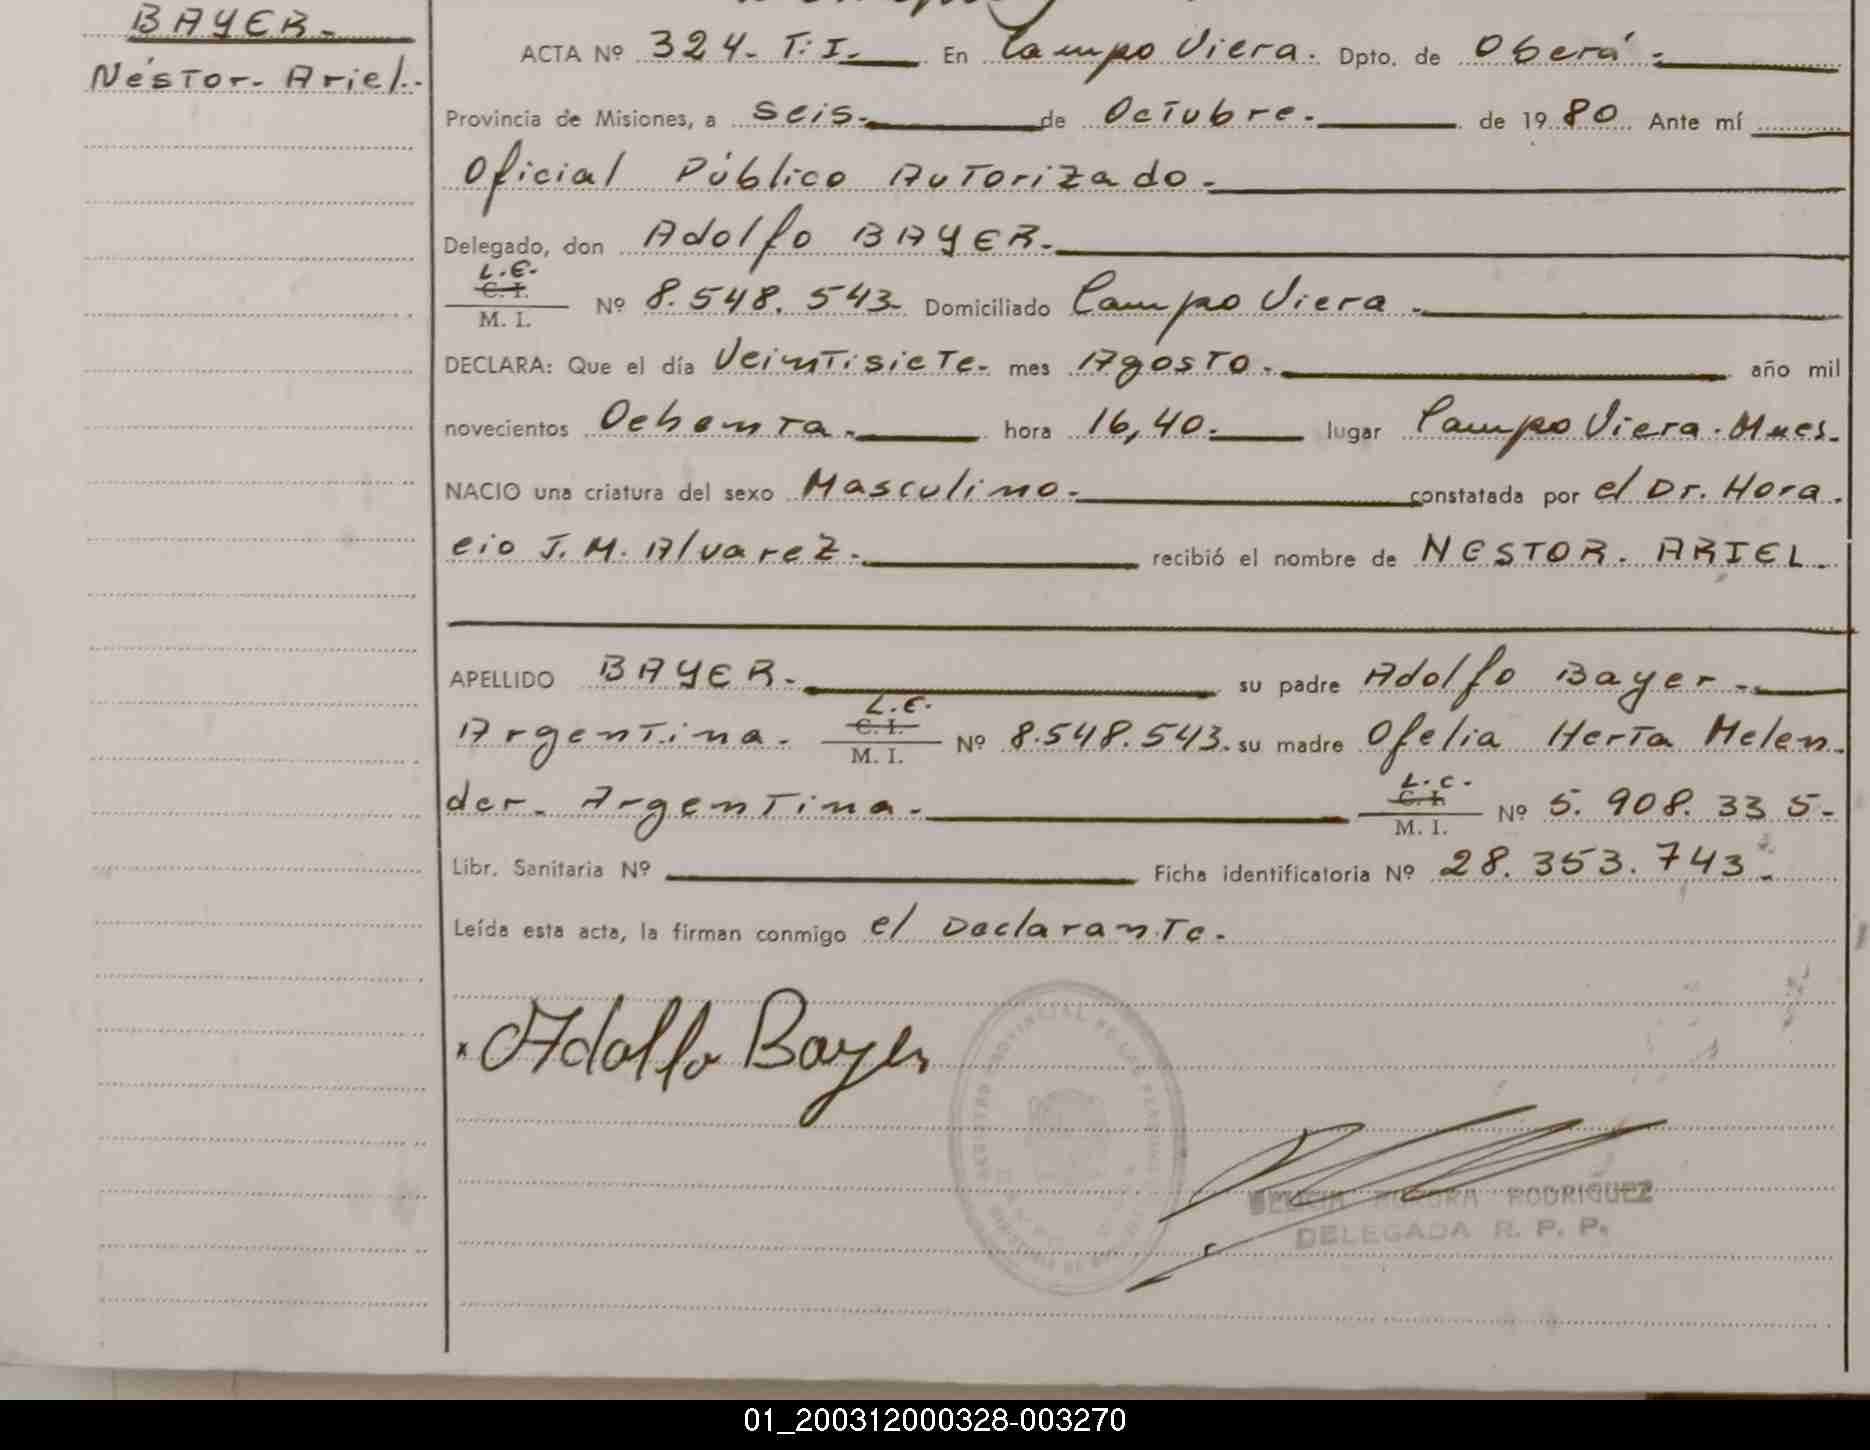 BAYER.-
Néstor- Ariel.-
ACTA Nº 324- T:I. En Campo Viera. Dpto. de Oberá.-
Provincia de Misiones, a seis.- de Octubre.- de 1980 Ante mí
Oficial Público Autorizado.-
Delegado, don Adolfo BAYER.-
L.E.
C. I.
M. I.
Nº 8.548.543- Domiciliado Campo Viera.-
DECLARA: Que el día Veintisiete- mes Agosto.- año mil
novecientos Ochenta.- hora 16,40.- lugar Campo Viera. Mnes.
NACIO una criatura del sexo Masculino.- constatada por el Dr. Hora-
cio J. M. Alvarez.- recibió el nombre de NESTOR. ARIEL.-
APELLIDO BAYER.- su padre Adolfo Bayer.-
Argentina. L.E. C. I. M. I. Nº 8.548.543. su madre Ofelia Herta Melen-
der- Argentina.- L.C. C. I. M. I. Nº 5.908.335-
Libr. Sanitaria Nº Ficha identificatoria Nº 28.353.743.-
Leída esta acta, la firman conmigo el Declarante.-
x Adolfo Bayer
REGISTRO PROVINCIAL DE LAS PERSONAS
AURORA RODRIGUEZ
DELEGADA R. P. P.
01_200312000328-003270